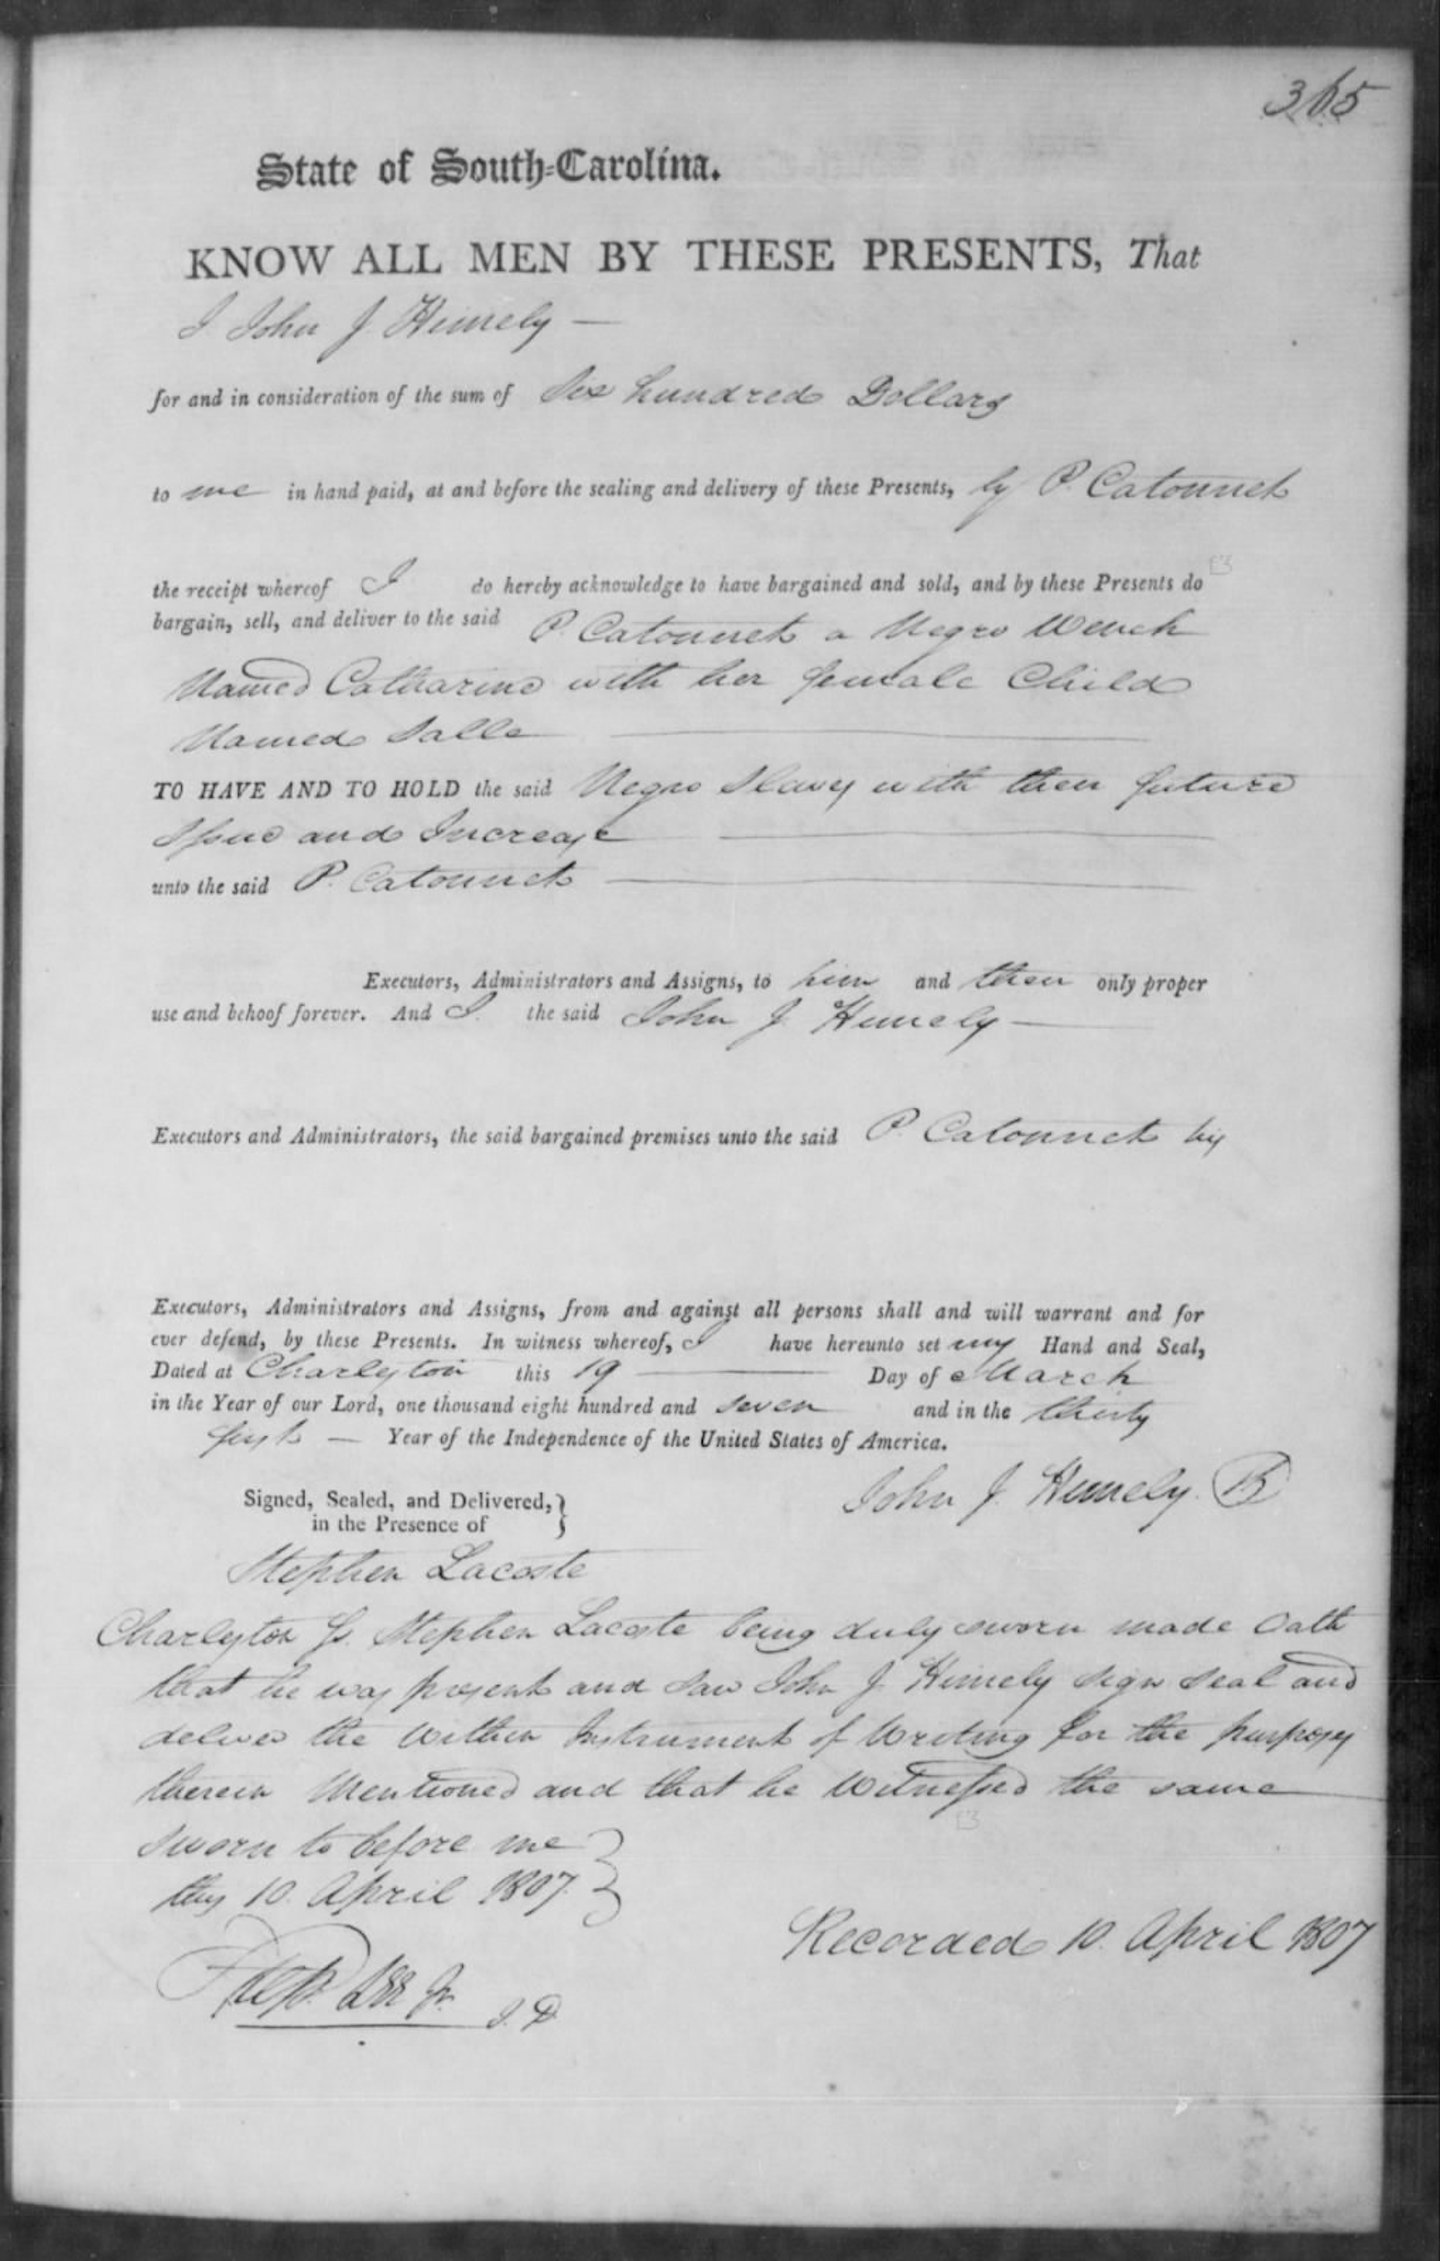 365
State of South-Carolina.
KNOW ALL MEN BY THESE PRESENTS, That
I John J Himely —
for and in consideration of the sum of Six hundred Dollars
to me in hand paid, at and before the sealing and delivery of these Presents, by P. Catonnet
the receipt whereof I do hereby acknowledge to have bargained and sold, and by these Presents do
bargain, sell, and deliver to the said P. Catonnet a Negro Wench
Named Catharine with her female Child
Named Salle
TO HAVE AND TO HOLD the said Negro Slaves with their future
Issue and Increase
unto the said P. Catonnet
Executors, Administrators and Assigns, to him and their only proper
use and behoof forever. And I. the said John J Himely —
Executors and Administrators, the said bargained premises unto the said P. Catonnet his
Executors, Administrators and Assigns, from and against all persons shall and will warrant and for
ever defend, by these Presents. In witness whereof, I have hereunto set my Hand and Seal,
Dated at Charleston this 19 — Day of March
in the Year of our Lord, one thousand eight hundred and seven and in the thirty
first — Year of the Independence of the United States of America.
John J. Himely.
Signed, Sealed, and Delivered,}
in the Presence of
Stephen Lacoste
Charleston Ss. Stephen Lacoste being duly sworn made Oath
that he was present and saw John J Himely sign seal and
deliver the within Instrument of Writing for the purposes
therein Mentioned and that he Witnessed the same
Sworn to before me
this 10. April 1807.
Recorded 10. April 1807
Lee Jr.